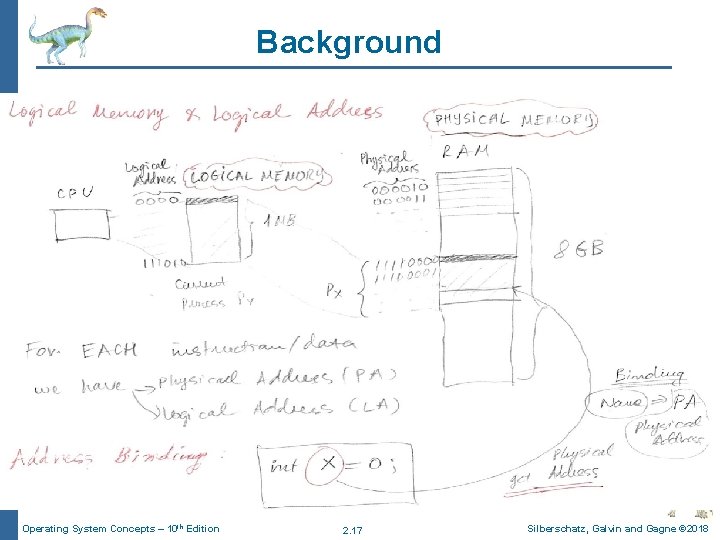 Background
Logical Memory & Logical Address
PHYSICAL MEMORY
RAM
Logical Address
LOGICAL MEMORY
Physical Address
CPU
0000
000010
000011
1 MB
8 GB
111010
11110000
11110001
Px
Current
Process Px
For EACH instruction/data
we have → Physical Address (PA)
↘ Logical Address (LA)
Binding
Name ⇒ PA
Physical Address
Address Binding:
int X = 0;
get Physical Address
Operating System Concepts – 10th Edition
2.17
Silberschatz, Galvin and Gagne ©2018